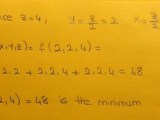 nce z=4, y=z/2=2 x=z/2
(x,y,z)=f(2,2,4)=
2.2+2.2.4+2.2.4=48
2,4)=48 is the minimum